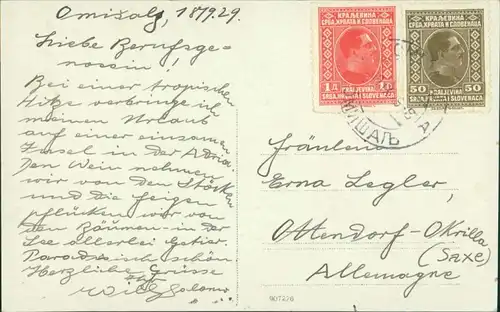 Omišalj, 18/9.29.
Liebe Berufsge-
nossin!
Bei einer tropischen
Hitze verbringe ich
meinen Urlaub
auf einer einsamen
Insel in der Adria.
Den Wein nehmen
wir von den Stöcken
und die Feigen
pflücken wir von
den Bäumen - in der
See allerlei Getier.
Paradiesisch schön.
Herzliche Grüsse
КРАЉЕВИНА
СРБА, ХРВАТА И СЛОВЕНАЦА
1 Д
KRALJEVINA
SRBA, HRVATA I SLOVENACA
КРАЉЕВИНА
СРБА, ХРВАТА И СЛОВЕНАЦА
50 50
KRALJEVINA
SRBA, HRVATA I SLOVENACA
ОМИШАЉ
Fräulein
Erna Legler,
Ottendorf-Okrilla
(Saxe)
Allemagne